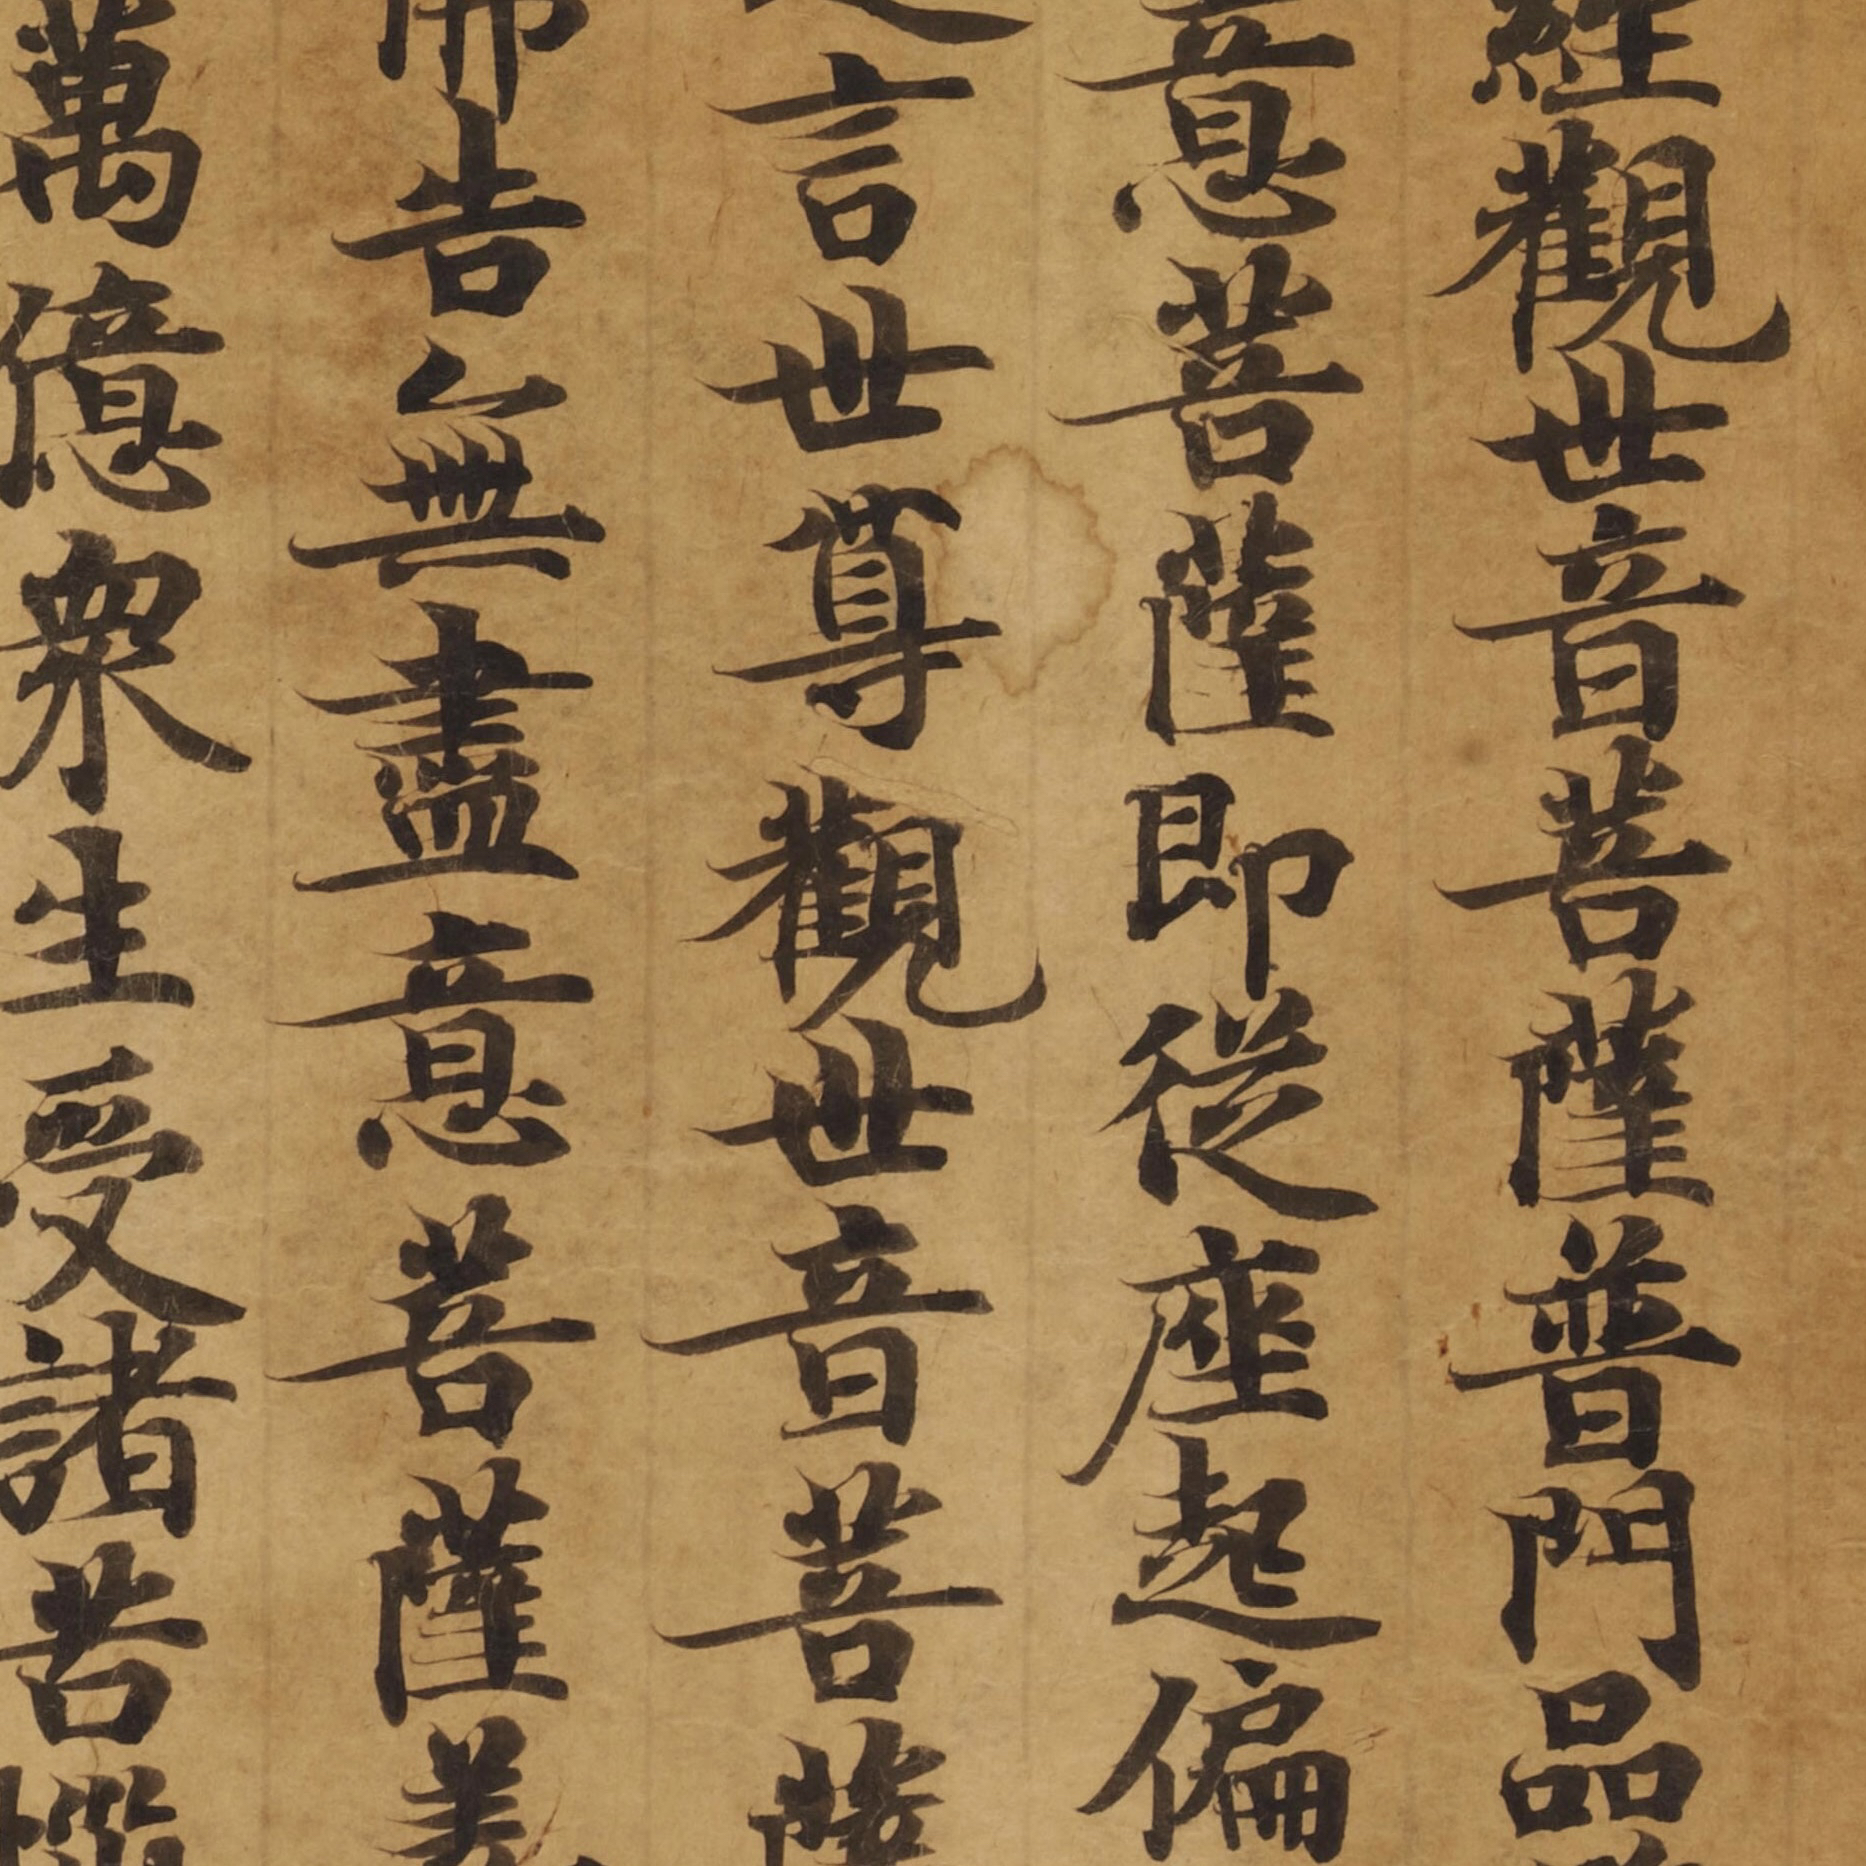 經觀世音菩薩普門品
意菩薩即從座起偏
言世尊觀世音菩薩
佛告無盡意菩薩善
萬億衆生受諸苦惱